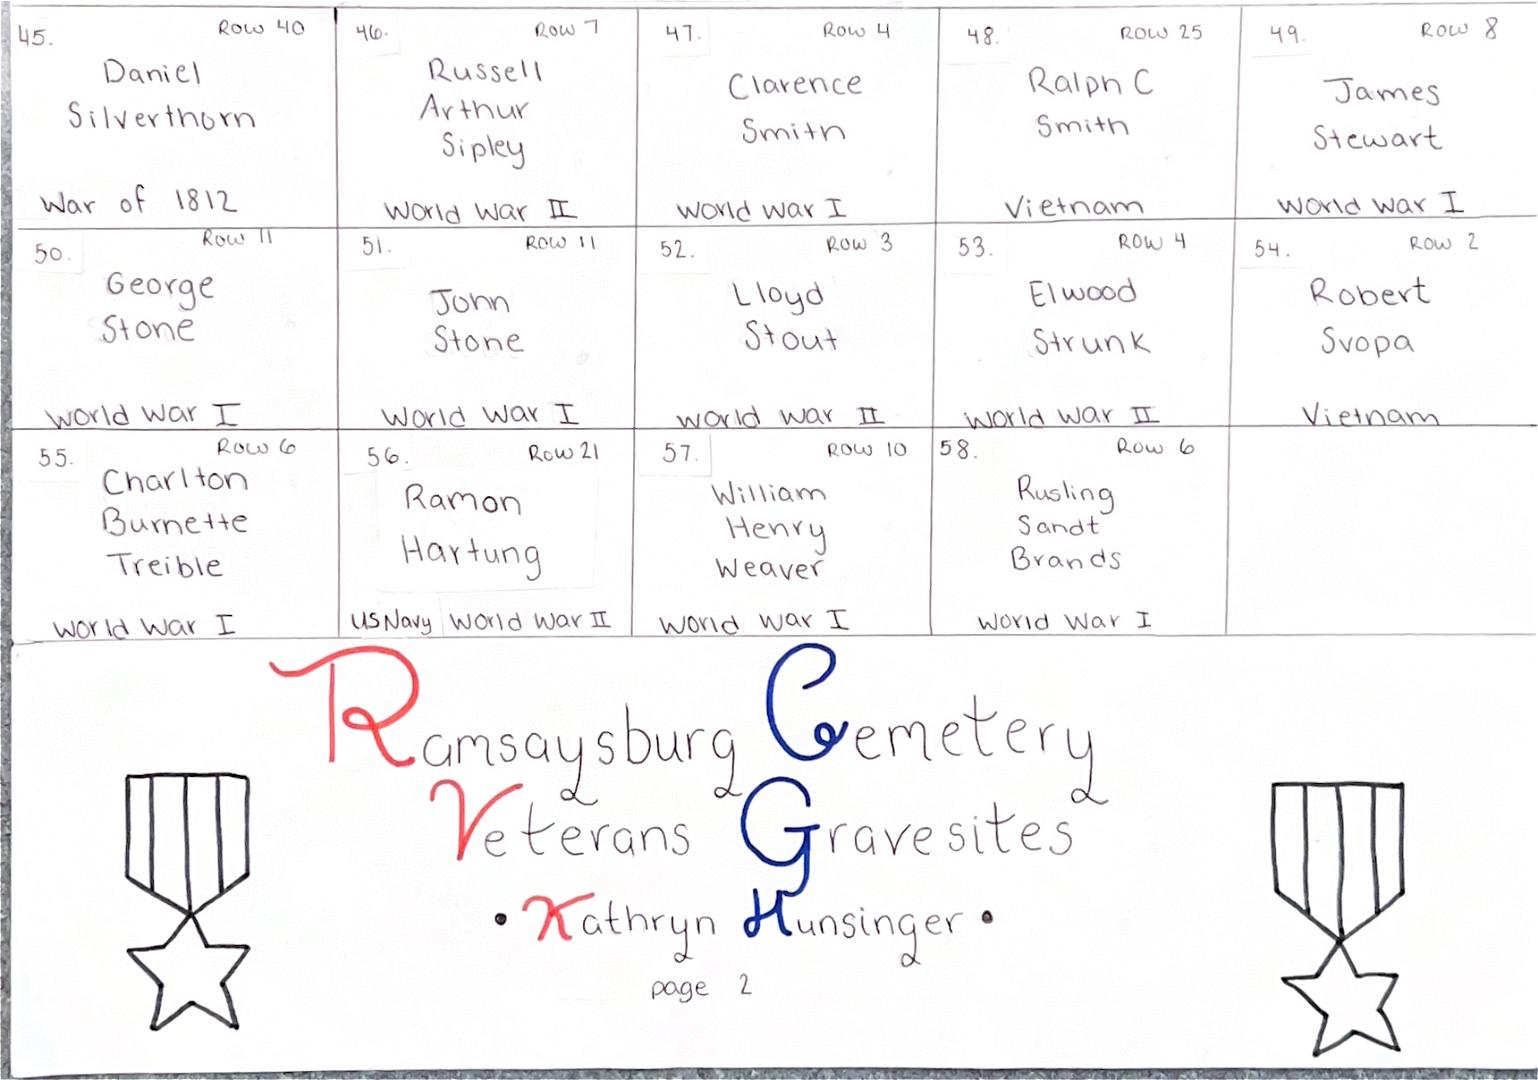 45. Row 40
Daniel
Silverthorn
War of 1812
46. Row 7
Russell
Arthur
Sipley
World War II
47. Row 4
Clarence
Smith
World War I
48. Row 25
Ralph C
Smith
Vietnam
49. Row 8
James
Stewart
World War I
50. Row 11
George
Stone
World War I
51. Row 11
John
Stone
World War I
52. Row 3
Lloyd
Stout
World War II
53. Row 4
Elwood
Strunk
World War II
54. Row 2
Robert
Svopa
Vietnam
55. Row 6
Charlton
Burnette
Treible
World War I
56. Row 21
Ramon
Hartung
US Navy World War II
57. Row 10
William
Henry
Weaver
World War I
58. Row 6
Rusling
Sandt
Brands
World War I
Ramsaysburg Cemetery
Veterans Gravesites
• Kathryn Hunsinger •
page 2